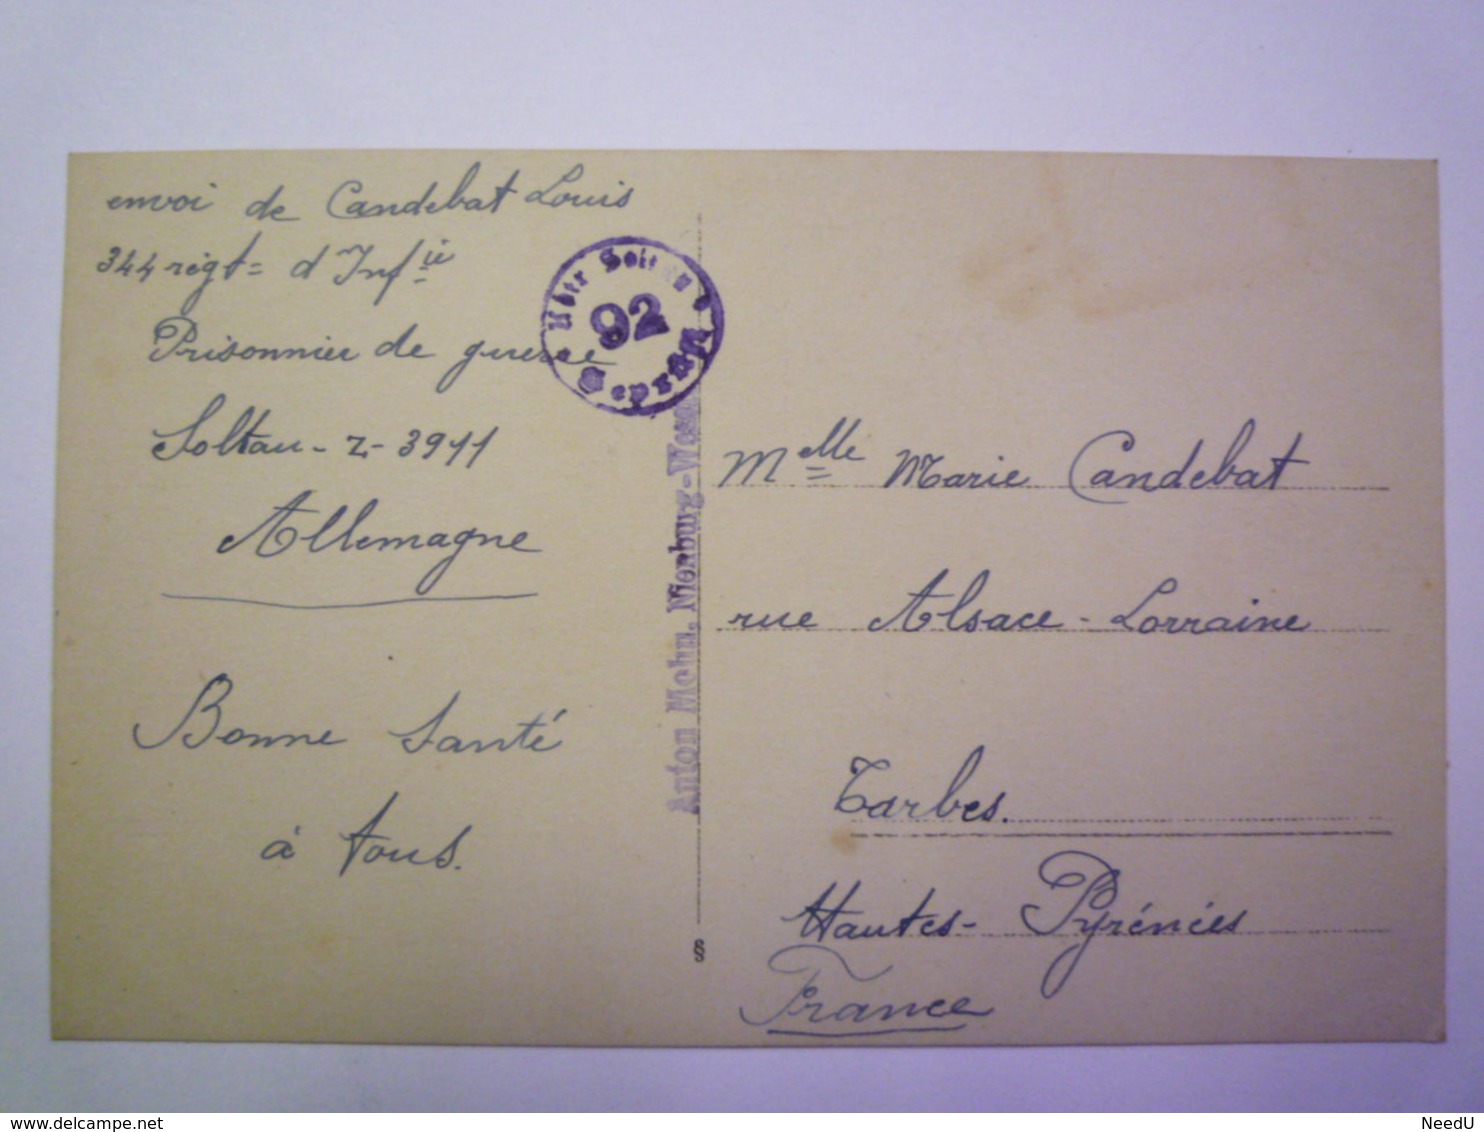 envoi de Candebat Louis
344 régt= d'Infie
Prisonnier de guerre
Soltau-z-3911
Allemagne
Bonne Santé
à tous.
92
Anton Mohn, Nienburg-Weser
Melle Marie Candebat
rue Alsace-Lorraine
Tarbes.
Hautes-Pyrénées
France
§
www.delcampe.net
NeedU